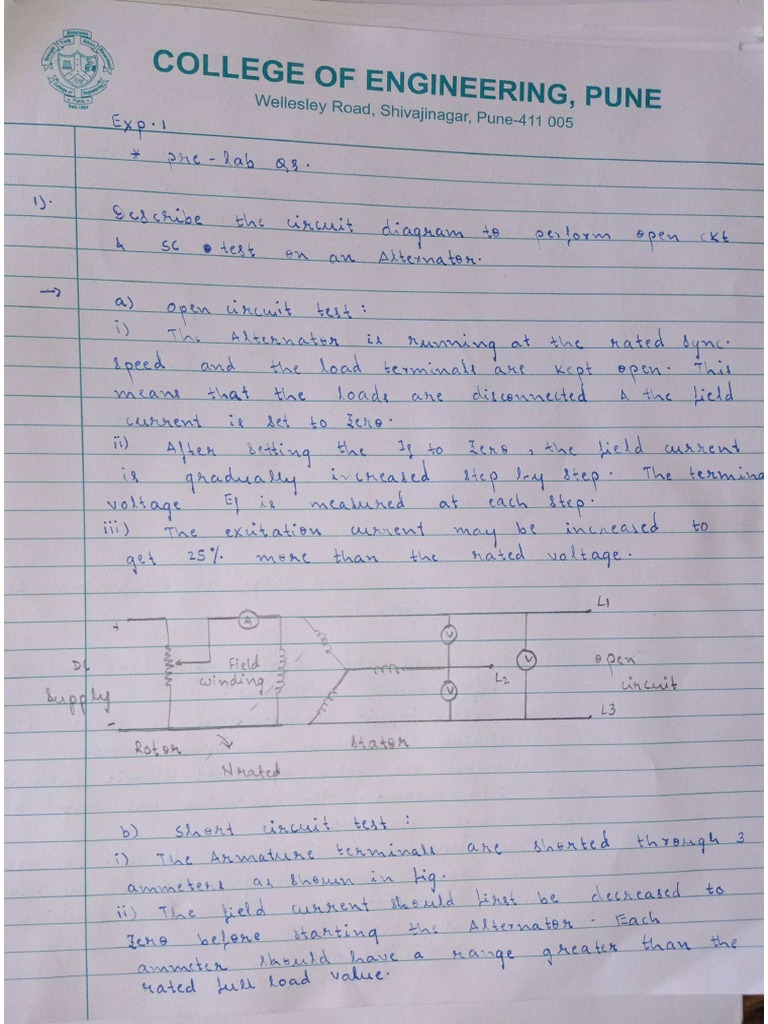 COLLEGE OF ENGINEERING, PUNE
Wellesley Road, Shivajinagar, Pune-411 005
Exp. 1
* pre-lab Qs.
1). Describe the circuit diagram to perform open ckt
& SC test on an Alternator.
→ a) open circuit test :
i) The Alternator is running at the rated sync.
speed and the load terminals are kept open. This
means that the loads are disconnected & the field
current is set to zero.
ii) After setting the If to zero, the field current
is gradually increased step by step. The termina
voltage Ef is measured at each step.
iii) The excitation current may be increased to
get 25% more than the rated voltage.
L1
+ A
V
DC Field V open
Supply winding L2 circuit
V
- L3
Rotor Stator
Nrated
b) Short circuit test :
i) The Armature terminals are shorted through 3
ammeters as shown in fig.
ii) The field current should first be decreased to
zero before starting the Alternator. Each
ammeter should have a range greater than the
rated full load value.